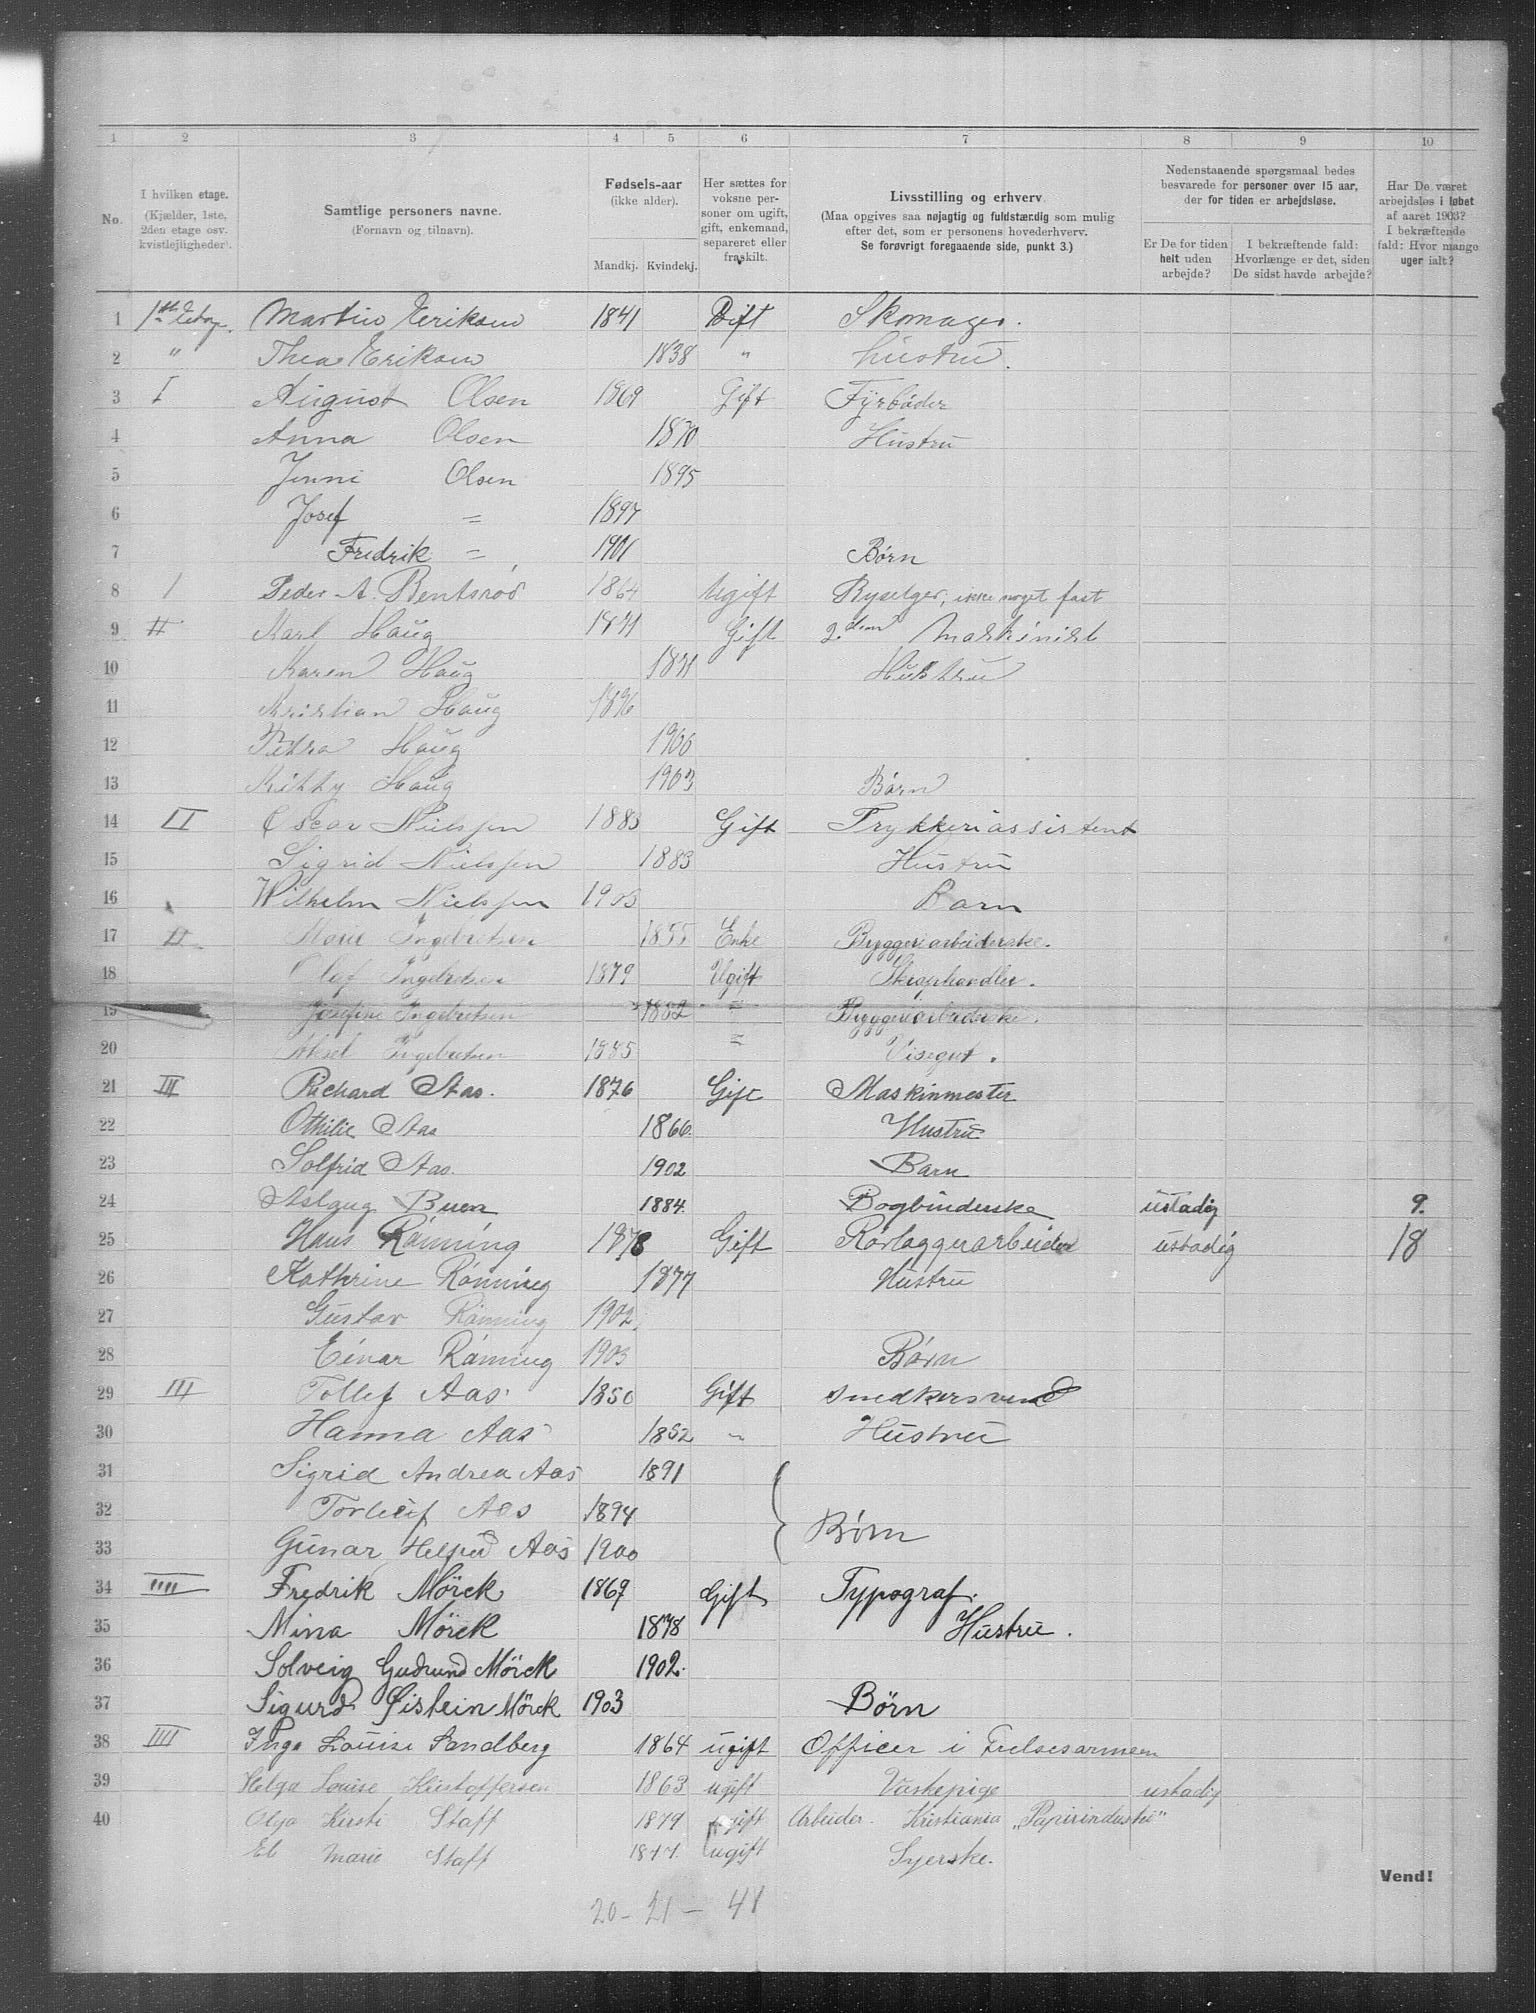 1 2 3 4 5 6 7 8 9 10
No.
I hvilken etage. (Kjælder, 1ste, 2den etage osv. kvistlejligheder).
Samtlige personers navne. (Fornavn og tilnavn).
Fødsels-aar (ikke alder).
Mandkj. Kvindekj.
Her sættes for voksne personer om ugift, gift, enkemand, separeret eller fraskilt.
Livsstilling og erhverv. (Maa opgives saa nøjagtig og fuldstændig som mulig efter det, som er personens hovederhverv. Se forøvrigt foregaaende side, punkt 3.)
Nedenstaaende spørgsmaal bedes besvarede for personer over 15 aar, der for tiden er arbejdsløse.
Er De for tiden helt uden arbejde?
I bekræftende fald: Hvorlænge er det, siden De sidst havde arbejde?
Har De været arbejdsløs i løbet af aaret 1903? I bekræftende fald: Hvor mange uger ialt?
1 1ste Etage. Martin Eriksen 1841 Gift Skomager.
2 " Thea Eriksen 1838 " hustru.
3 I August Olsen 1869 Gift Fyrbøder
4 Anna Olsen 1870 Hustru
5 Jenni Olsen 1895
6 Josef = 1897
7 Fredrik = 1901 Børn
8 / Peder A. Bentsrød 1864 Ugift Ryselger, ikke noget fast
9 II Karl Haug 1871 Gift 2.den Maskinist
10 Karen Haug 1871 Hustru
11 Kristian Haug 1896
12 Petra Haug 1900
13 Kitty Haug 1903 Børn
14 II Oscar Nielssen 1883 Gift Trykkeriassistent
15 Sigrid Nielssen 1883 Hustru
16 Wilhelm Nielssen 1903 Barn
17 II Marie Ingebretsen 1855 Enke Bryggeriarbeiderske.
18 Olaf Ingebretsen 1879 Ugift Skraphandler.
19 Josefine Ingebretsen 1882 " Bryggeriarbeiderske.
20 Aksel Ingebretsen 1885 = Visegut.
21 III Richard Aas. 1876 Gift Maskinmester
22 Othilie Aas 1866. Hustru
23 Solfrid Aas. 1902 Barn
24 Aslaug Buen 1884. Bogbinderske ustadig 9.
25 Hans Rønning 1878 Gift Rørlæggerarbeider ustadig 18
26 Kathrine Rønning 1877 Hustru
27 Gustav Rønning 1902
28 Einar Rønning 1903 Børn
29 III Tollef Aas 1850 Gift snedkersvend
30 Hanna Aas 1852 " Hustru
31 Sigrid Andrea Aas 1891
32 Torleif Aas 1894 Børn
33 Gunar Helfred Aas 1900
34 IIII Fredrik Mörck 1869 Gift Typograf.
35 Mina Mörck 1878 Hustru.
36 Solveig Gudrund Mörck 1902.
37 Sigurd Øistein Mörck 1903 Börn
38 IIII Inga Louise Sandberg 1864 ugift Officer i Frelsesarmeen
39 Helga Louise Kristoffersen 1863 ugift Vaskepige ustadig
40 Olga Kirsti Staff 1879 ugift Arbeider. Kristiania "Papirindustri"
El Marie Staff 1877. ugift Syerske.
Vend!
20 - 21 - 41